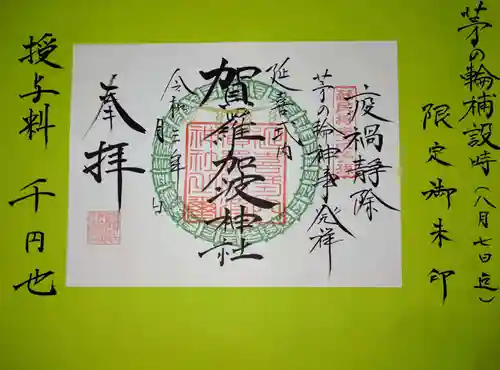 茅の輪補設時（八月七日迄）
限定御朱印
疫禍静除
茅の輪神事発祥
延喜式内
賀羅加波神社
令和三年 月 日
奉拝
授与料 千円也